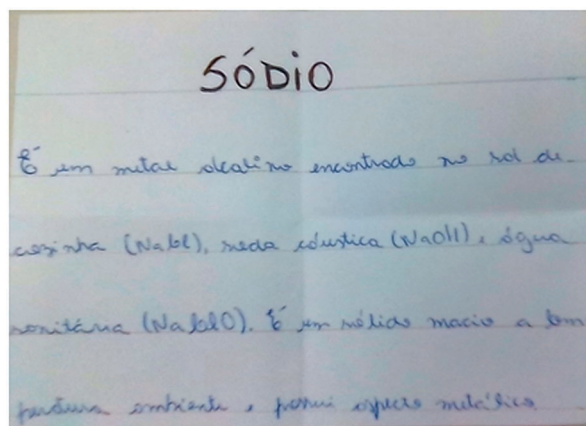 SÓDIO
É um metal alcalino encontrado no sal de
cozinha (NaCl), soda cáustica (NaOH), água
sanitária (NaClO). É um sólido macio a tem
peratura ambiente, possui aspecto metálico